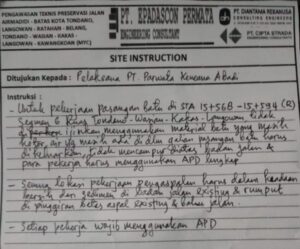 PENGAWASAN TEKNIS PRESERVASI JALAN
AIRMADIDI - BATAS KOTA TONDANO,
LANGOWAN - RATAHAN - BELANG,
TONDANO - WASIAN - KAKAS -
LANGOWAN - KAWANGKOAN (MYC)
PT. EPADASCON PERMATA
ENGINEERING CONSULTANT
PT. DIANTAMA REKANUSA
CONSULTING ENGINEERS
PT. CIPTA STRADA
SITE INSTRUCTION
Ditujukan Kepada : Pelaksana PT. Parwata Kencana Abadi
Instruksi :
- Untuk pekerjaan pasangan batu di STA 15+568 - 15+594 (R)
Segmen 6 Ruas Tondano-Wasian-Kakas-Langowan tidak
menggunakan material batu yang masih
kotor, yang masih ada di dalam pasangan batu harus
di keluarkan, tidak mencampur diatas badan jalan &
para pekerja harus menggunakan APD lengkap
- Semua lokasi pekerjaan pengaspalan harus dalam keadaan
bersih dari sedimen di badan jalan existing & rumput
di pinggiran batas aspal existing & bahu jalan.
- Setiap pekerja wajib menggunakan APD